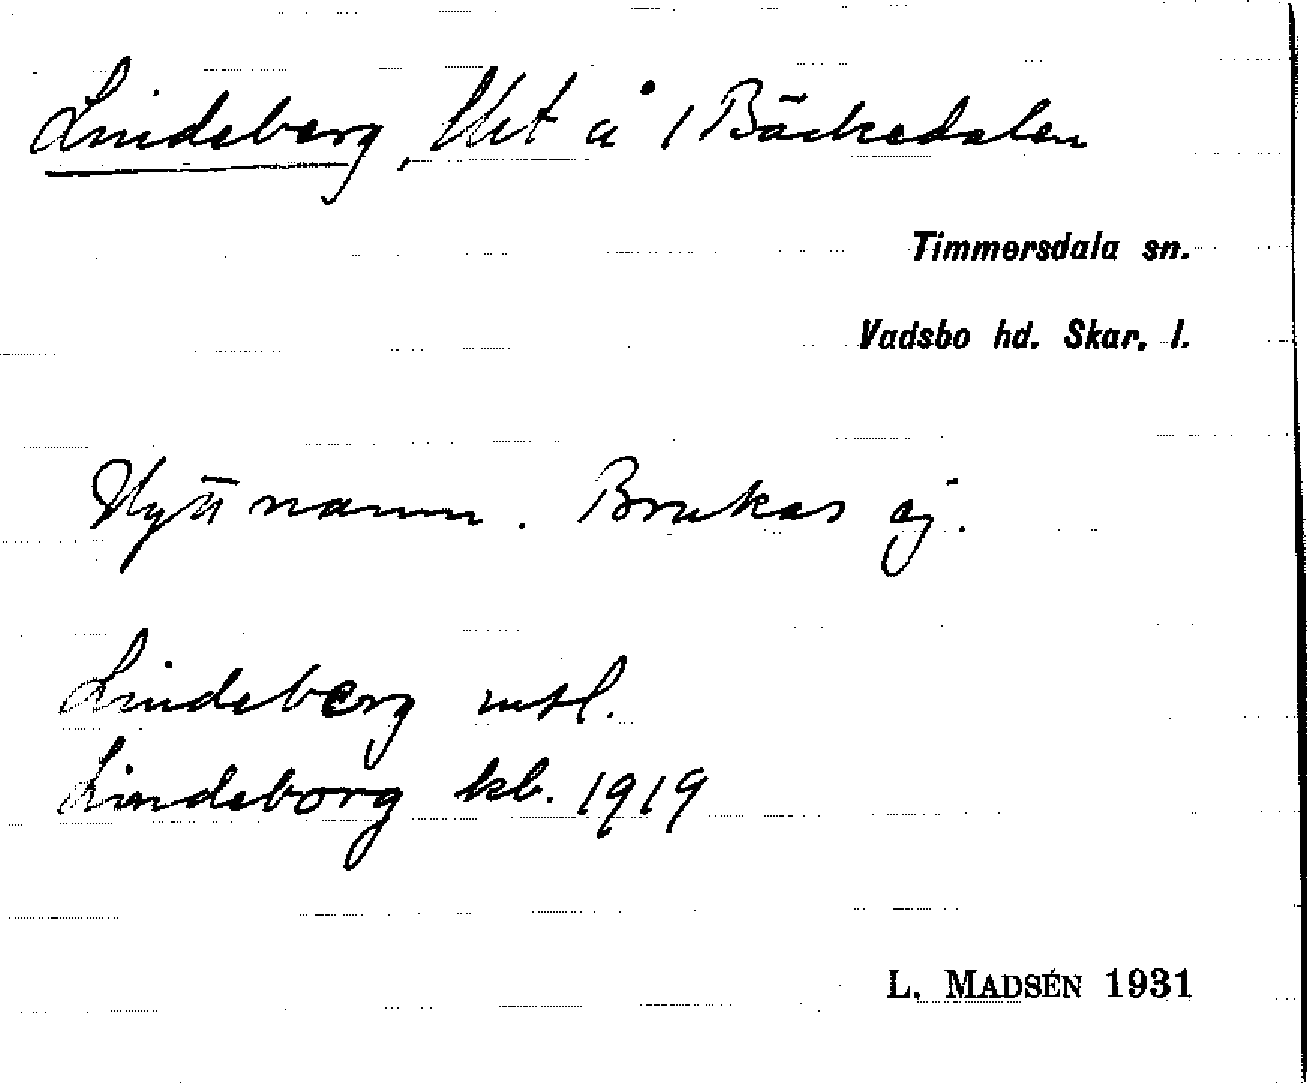 Lindeberg, lht å 1 Bäckedalen
Timmersdala sn.
Vadsbo hd. Skar. l.
Nytt namn. Brukas ej.
Lindeberg mtl.
Lindeborg kb. 1919
L. MADSÉN 1931